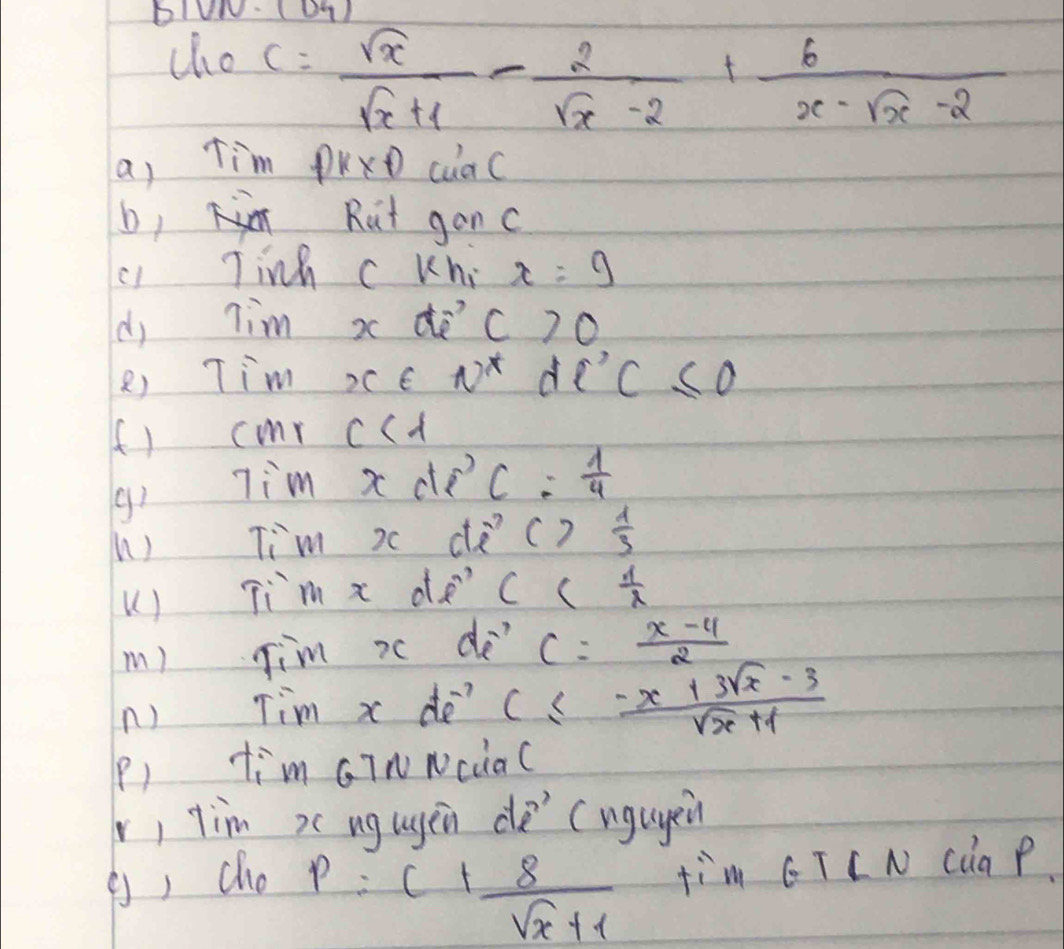 BTVN: (Đ4)
Cho C = \frac{\sqrt{x}}{\sqrt{x}+1} - \frac{2}{\sqrt{x}-2} + \frac{6}{x-\sqrt{x}-2}
a) Tìm ĐKXĐ của C
b) Rút gọn C
c) Tính C khi x = 9
d) Tìm x để C > 0
e) Tìm x ∈ N* để C ≤ 0
f) cmr C < 1
g) Tìm x để C = \frac{1}{4}
h) Tìm x để C > \frac{1}{3}
k) Tìm x để C < \frac{1}{2}
m) Tìm x để C = \frac{x-4}{2}
n) Tìm x để C ≤ \frac{-x+3\sqrt{x}-3}{\sqrt{x}+1}
p) tìm GTNN của C
r, Tìm x nguyên để C nguyên
, Cho P = C + \frac{8}{\sqrt{x}+1} tìm GTLN của P.